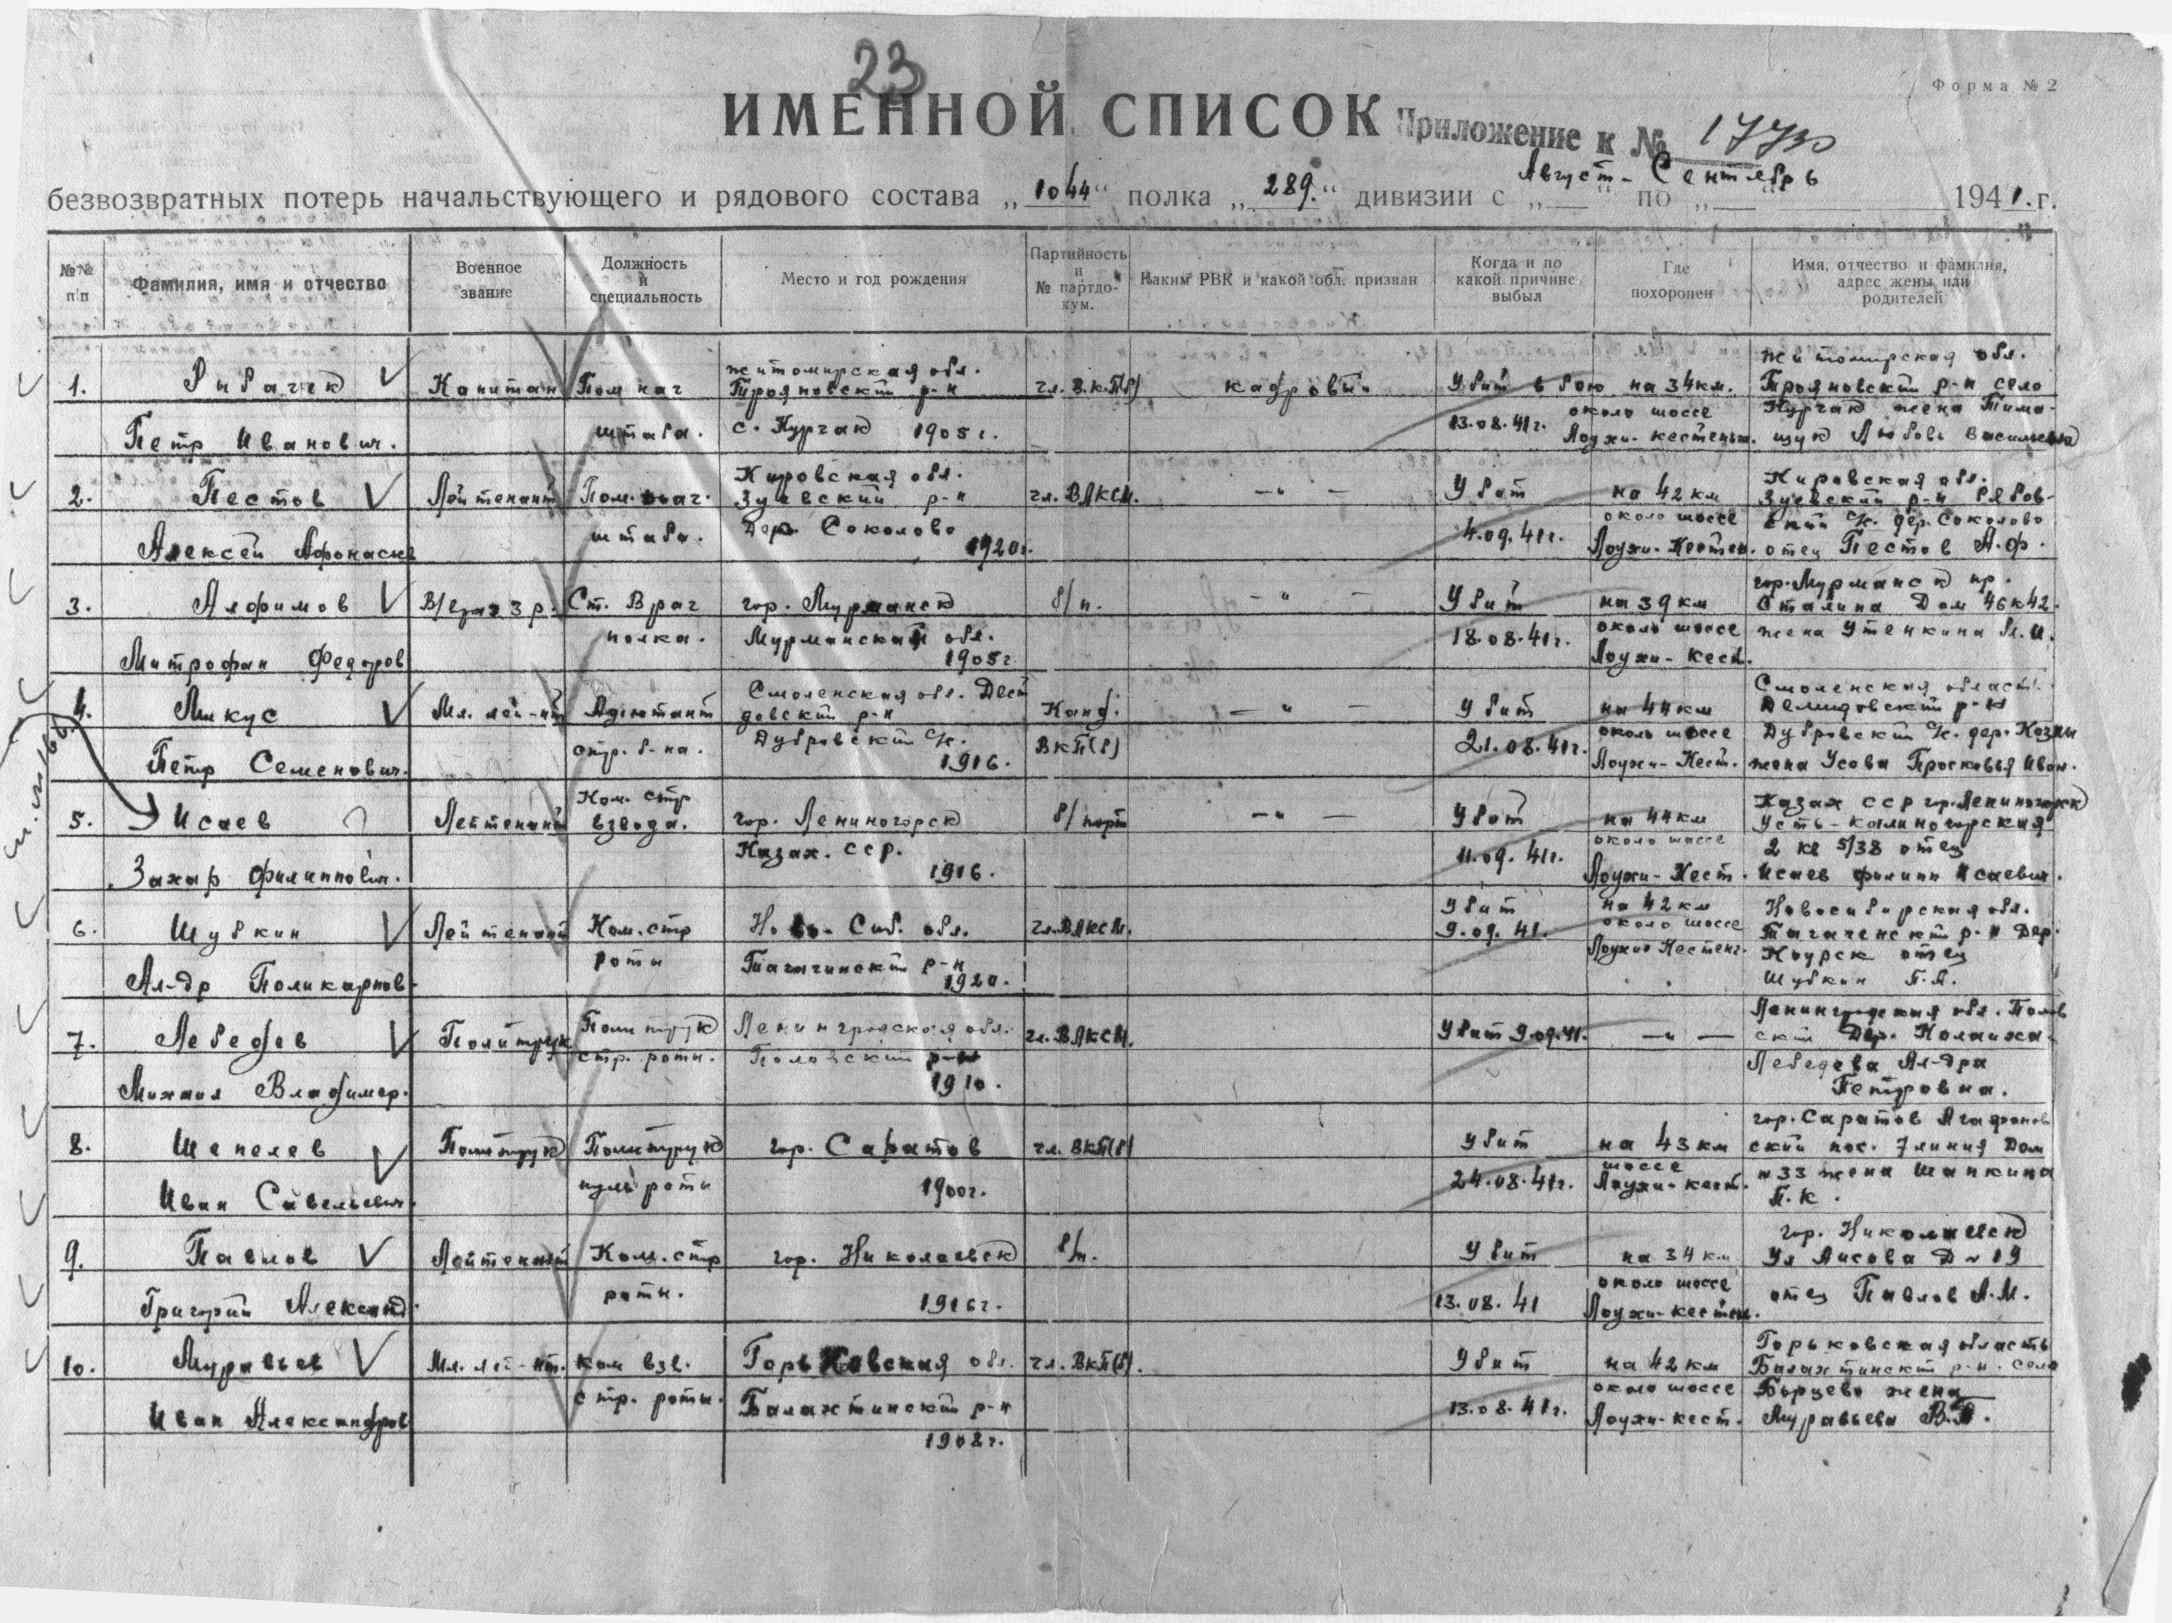 23
Форма № 2
ИМЕННОЙ СПИСОК
Приложение к № 1730
безвозвратных потерь начальствующего и рядового состава „1044“ полка „289.“ дивизии с „ “ по „ “ Август - Сентябрь 1941. г.
№№ п/п
Фамилия, имя и отчество
Военное звание
Должность и специальность
Место и год рождения
Партийность и № партдокум.
Каким РВК и какой обл. призван
Когда и по какой причине выбыл
Где похоронен
Имя, отчество и фамилия, адрес жены или родителей
1. Рыбачек Петр Иванович.
Капитан
Пом нач штаба.
Житомирская обл. Трояновский р-н с. Курчак 1905 г.
чл. ВКП(б)
кадровый
Убит в бою 13.08.41г.
на 34км. около шоссе Лоухи-Кестеньга.
Житомирская обл. Трояновский р-н село Курчак жена Тимощук Любовь Васильевна
2. Пестов Алексей Афонасье
Лейтенант
Пом. нач. штаба.
Кировская обл. Зуевский р-н Дер. Соколово 1920г.
чл. ВЛКСМ.
— „ —
Убит 4.09.41г.
на 42 км около шоссе Лоухи-Кестен.
Кировская обл. Зуевский р-н Рябовский с/с. дер. Соколово отец Пестов А.Ф.
3. Алфимов Митрофан Федоров
В/врач 3 р.
Ст. Врач полка.
гор. Мурманск Мурманская обл. 1905г
б/п.
— „ —
Убит 18.08.41г.
на 39 км около шоссе Лоухи-Кест.
гор. Мурманск пр. Сталина Дом 46 к 42. жена Утенкина
4. Микус Петр Семенович.
Мл. лей-нт
Адютант стр. б-на.
Смоленская обл. р-н Дубровский с/с. 1916.
Канд. ВКП(б)
— „ —
Убит 21.08.41г.
на 44 км около шоссе Лоухи-Кест.
Смоленская област. Демидовский р-н Дубровский с/с. дер. жена Усова Просковья Иван.
5. Исаев Захар Филиппович.
Лейтенант
Ком. стр взвода.
гор. Лениногорск Казах. ССР. 1916.
б/парт
— „ —
Убит 11.09.41г.
на 44 км около шоссе Лоухи-Кест.
Казах ССР гор. Лениногорск Усть-Калиногорская 2 кв 5/38 отец Исаев Филипп Исаевич.
6. Шубкин Ал-др Поликарпов.
Лейтенант
Ком. стр роты
Ново-Сиб. обл. р-н 1920.
чл. ВЛКСМ.
Убит 9.09.41.
на 42 км около шоссе Лоухи Кестенг.
Новосибирская обл. р-н Дер. отец Шубкин П.А.
7. Лебедев Михаил Владимир.
Политрук
Политрук стр. роты.
Ленинградская обл. р-н 1910.
чл. ВЛКСМ.
Убит 9.09.41.
— „ —
Ленинградская обл. Дер. Лебедева Ал-дра Петровна.
8. Шепелев Иван Савельевич.
Политрук
Политрук пуль роты
гор. Саратов 1900г.
чл. ВКП(б)
Убит 24.08.41г.
на 43 км шоссе Лоухи-Кест.
гор. Саратов Агафоновский пос. 7 линия Дом № 33 жена Шапкина П.К.
9. Павлов Григорий Александ.
Лейтенант
Ком. стр роты.
гор. Николаевск 1916г.
б/п.
Убит 13.08.41
на 34 км около шоссе Лоухи-Кестен.
гор. Николаевск Ул Лисова Д № 19 отец Павлов А.М.
10. Муравьев Иван Александров
Мл. лей-нт.
ком взв. стр. роты.
Горьковская обл. Балахтинский р-н 1908г.
чл. ВКП(б).
Убит 13.08.41г.
на 42 км около шоссе Лоухи-Кест.
Горьковская область Балахтинский р-н. село жена Муравьева